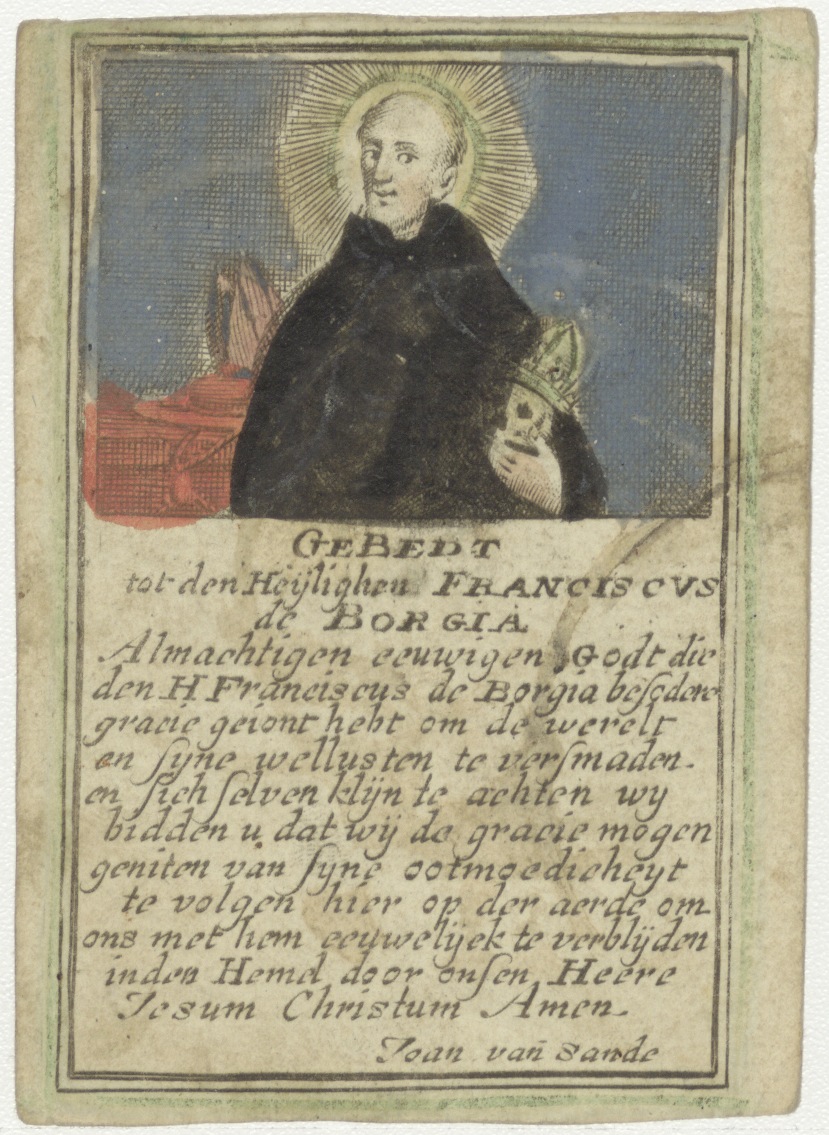 GEBEDT
tot den Heÿlighen FRANCISCVS
de BORGIA
Almachtigen eeuwigen Godt die
den H Franciscus de Borgia besodere
gracie geiont hebt om de werelt
en ſyne wellusten te verſmaden.
en ſich ſelven klÿn te achten wy
bidden u dat wÿ de gracie mogen
geniten van ſyne ootmoedicheyt
te volgen hier op der aerde om
ons met hem eeuwelÿck te verblÿden
inden Hemel door onſen Heere
Jesum Christum Amen.
Joan van Sande